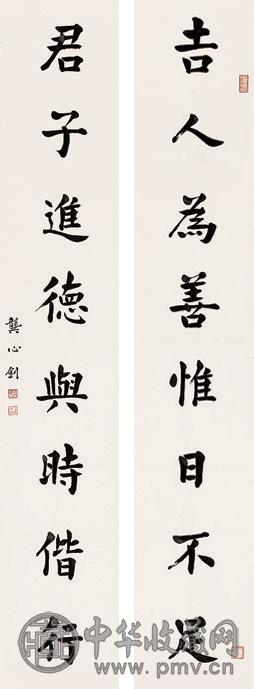 吉人為善惟日不足
君子進德與時偕行
龔心釗
中华收藏网
www.pmv.cn